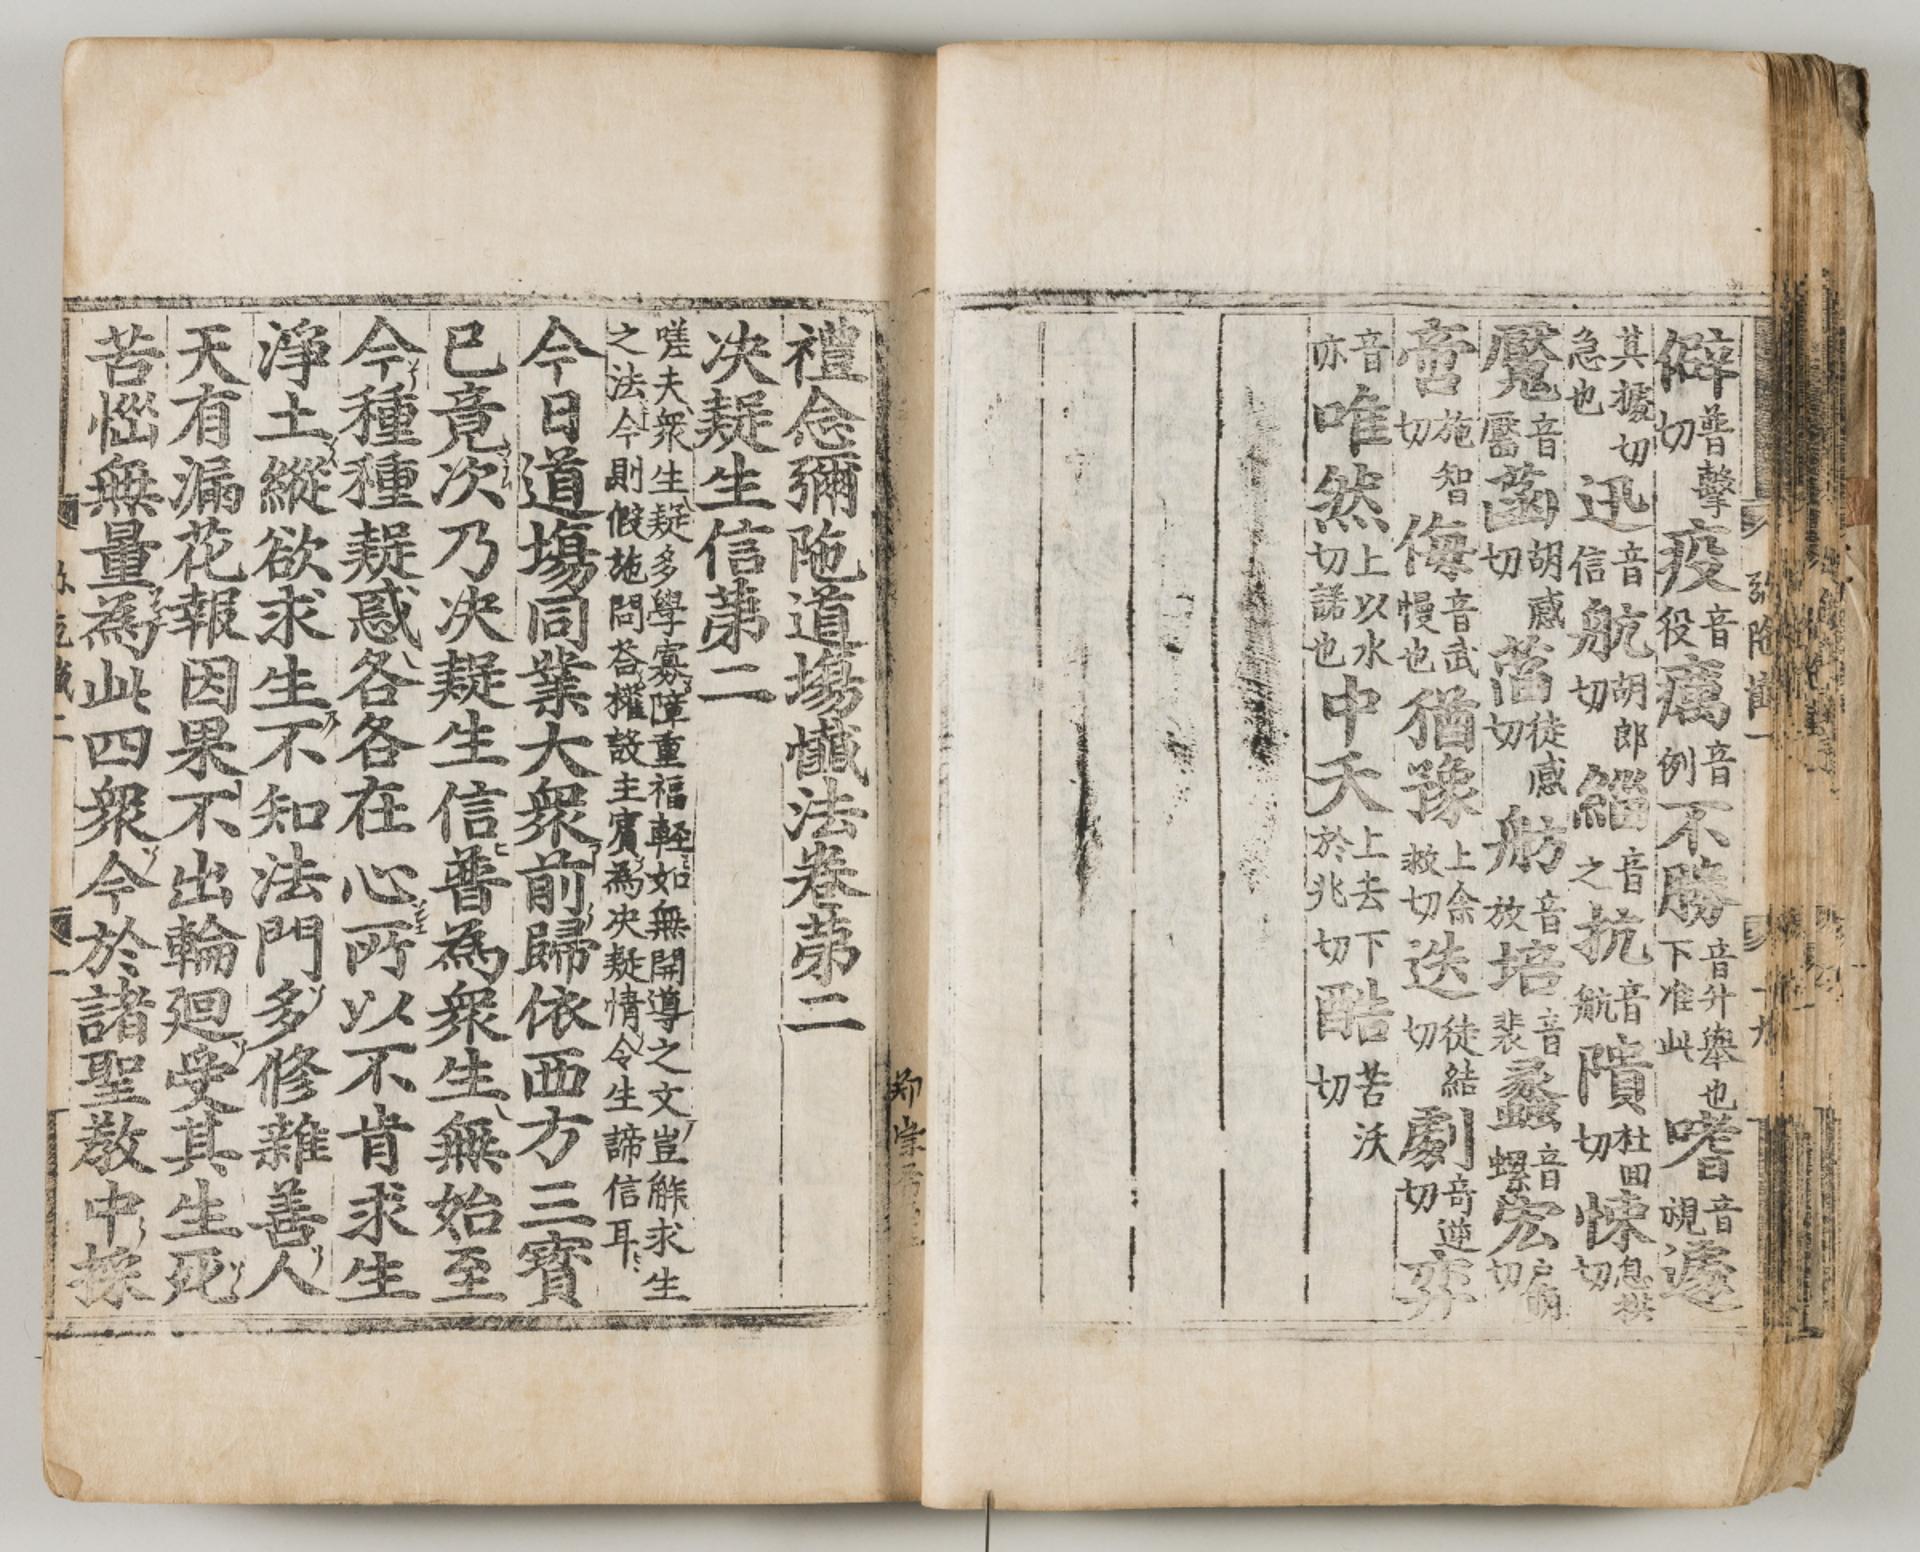 僻普擊切疫音役癘音例不勝音升舉也下准此嗜音視遽
其據切急也迅音信航胡郎切緇音之抗音航隤杜回切悚息拱切
魘音厴菡胡感切萏徒感切舫音放培音裴蠡音螺宏戶萌切
啻施智切侮音武慢也猶豫上余救切迭徒結切劇奇逆切弈
音亦唯然上以水切諾也中夭上去下於兆切酷苦沃切
弥陁懺一
禮念彌陁道場懺法卷第二
决疑生信第二
嗟夫衆生疑多學寡障重福輕如無開導之文豈能求生
之法今則假施問荅權設主賓為决疑情令生諦信耳
今日道場同業大衆前歸依西方三寳
已竟次乃决疑生信普為衆生無始至
今種種疑惑各各在心所以不肯求生
淨土縱欲求生不知法門多修雜善人
天有漏花報因果不出輪廻受其生死
苦惱無量為此四衆今於諸聖教中採